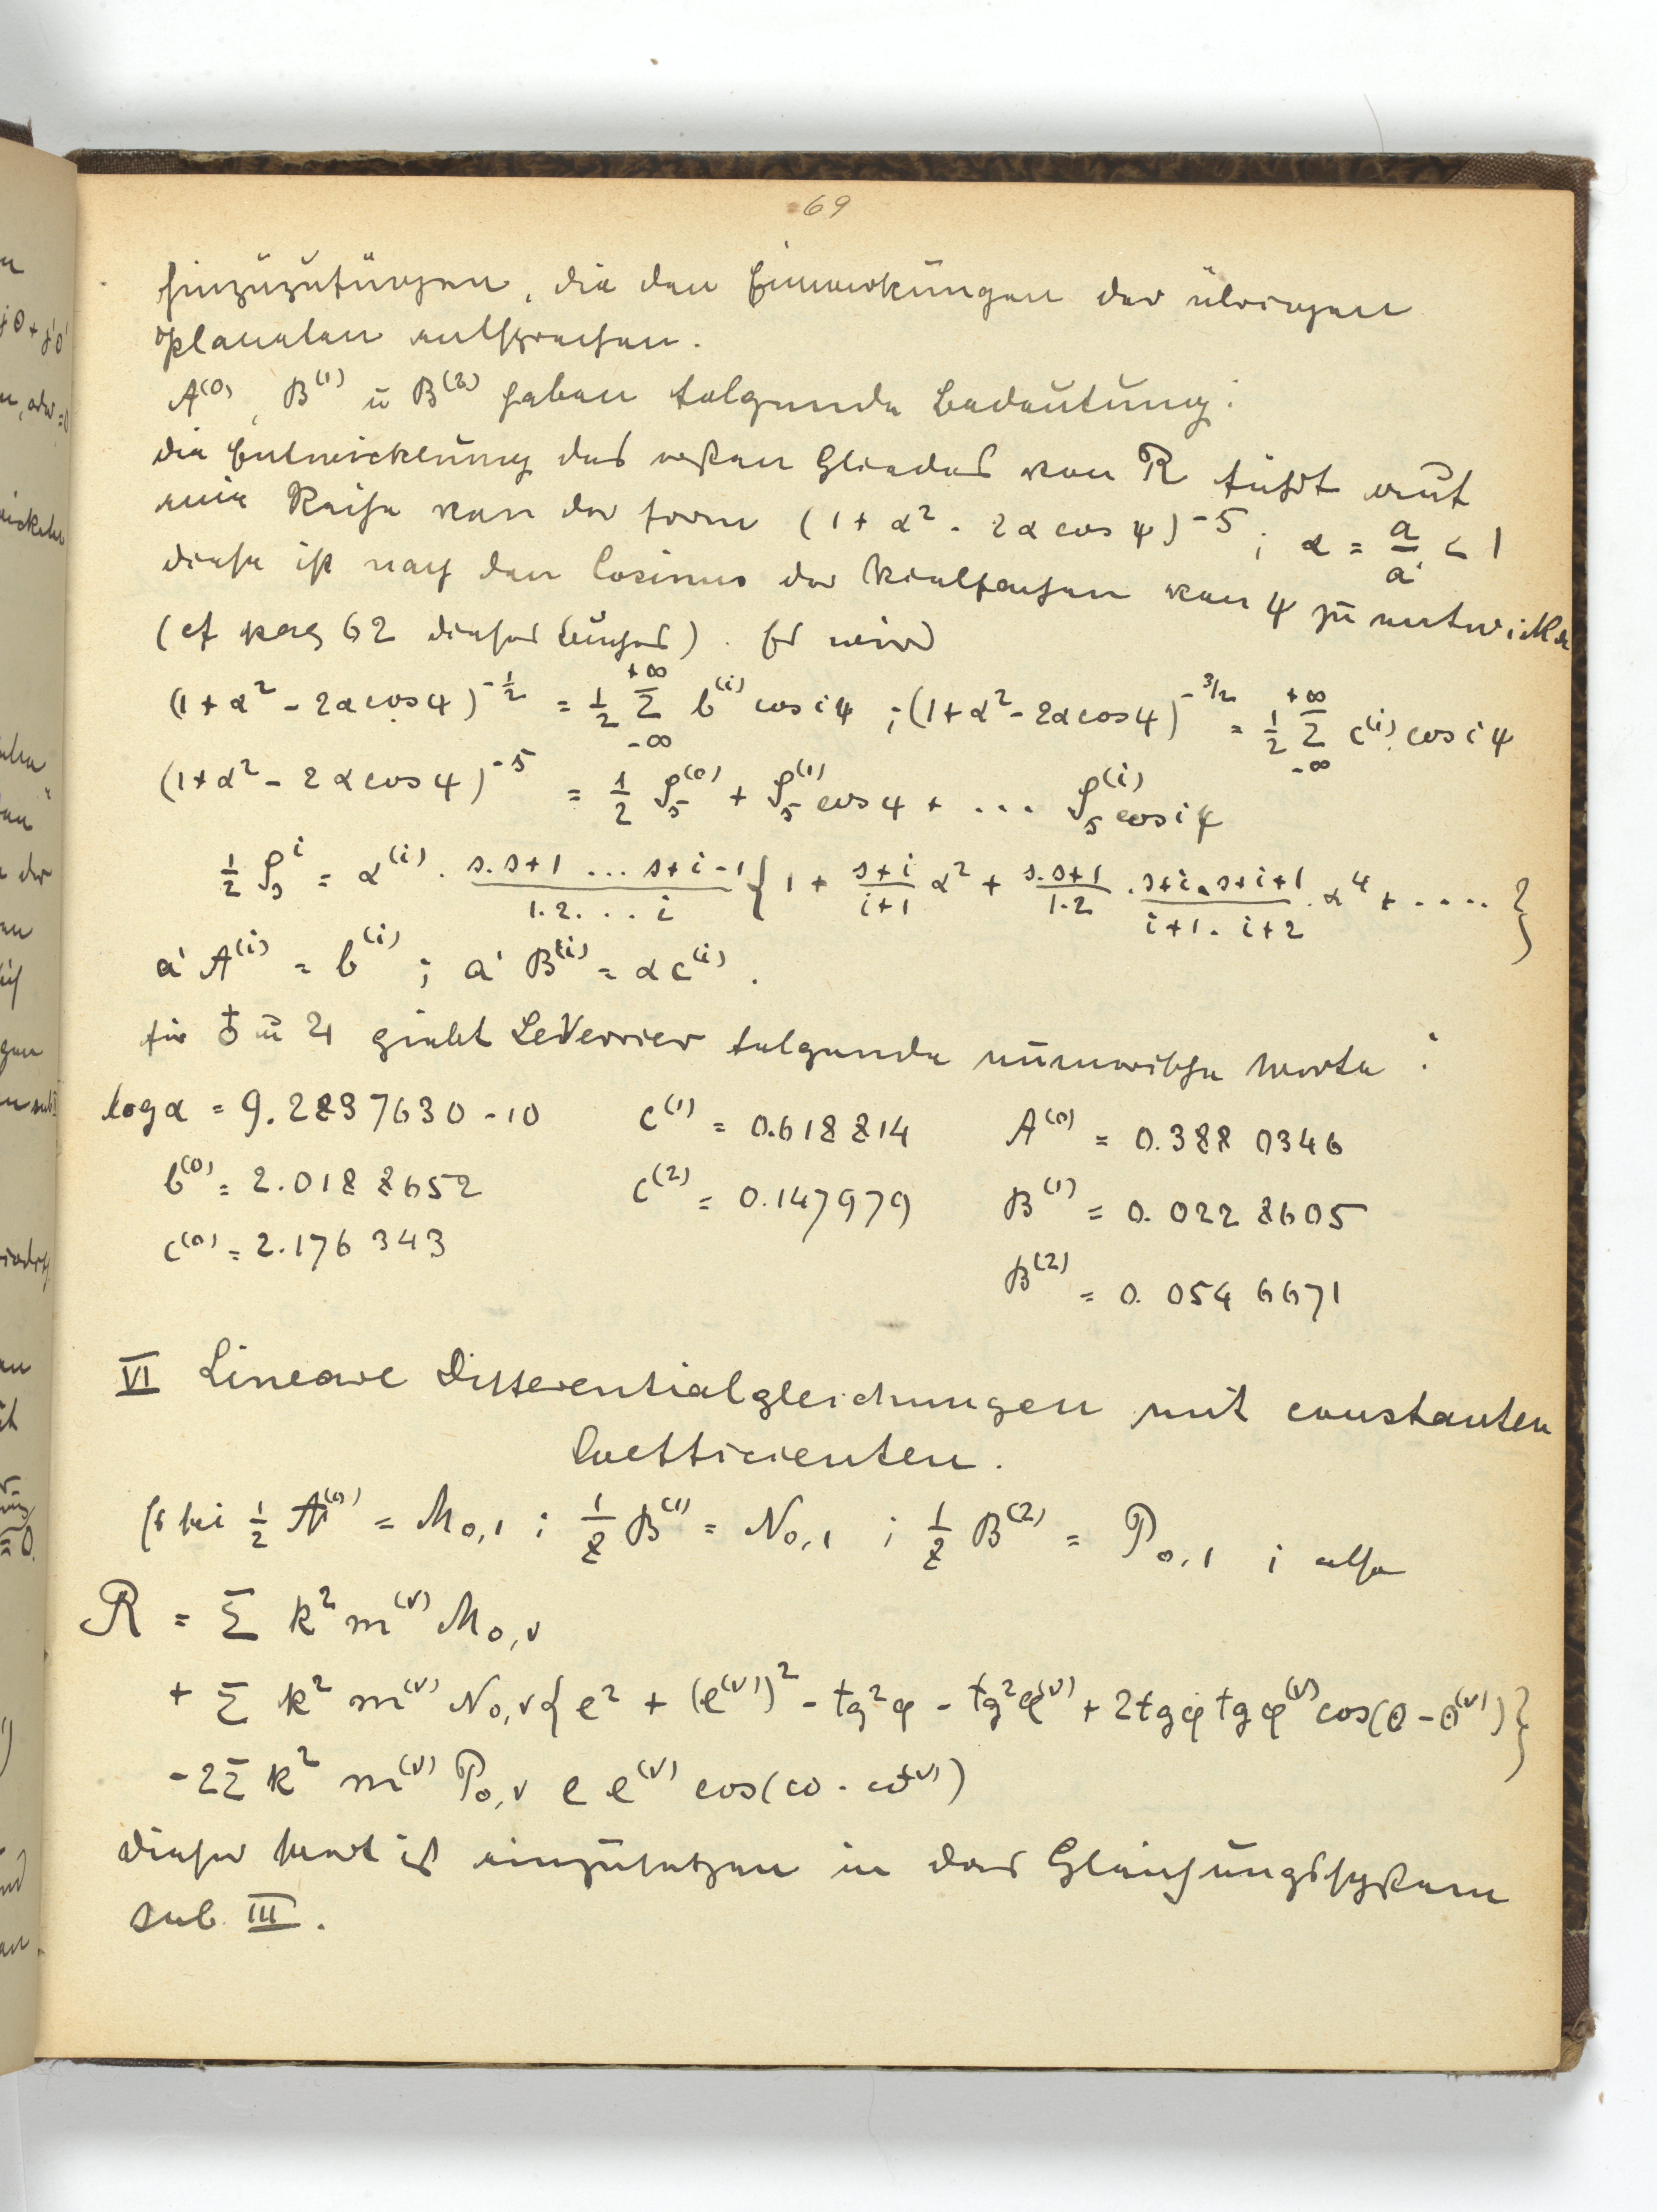 69
hinzuzufügen, die den Einwirkungen der übrigen
Planeten entsprechen.
A⁽⁰⁾, B⁽¹⁾ u B⁽²⁾ haben folgende Bedeutung:
die Entwicklung des ersten Gliedes von R führt auf
eine Reihe von der Form (1 + α² - 2α cos ψ)^-s ; α = a/a' < 1
diese ist nach den Cosinus der Vielfachen von ψ zu entwickeln
(cf pag 62 dieses Buches). Es wird
(1 + α² - 2α cos ψ)^-1/2 = 1/2 Σ_{-∞}^{+∞} b⁽ⁱ⁾ cos iψ ; (1 + α² - 2α cos ψ)^-3/2 = 1/2 Σ_{-∞}^{+∞} c⁽ⁱ⁾ cos iψ
(1 + α² - 2α cos ψ)^-s = 1/2 β_s⁽⁰⁾ + β_s⁽¹⁾ cos ψ + ... β_s⁽ⁱ⁾ cos iψ
1/2 β_s^i = α⁽ⁱ⁾ . (s. s+1 ... s+i-1)/(1. 2. .. i) { 1 + (s+i)/(i+1) α² + (s. s+1)/(1. 2) . (s+i. s+i+1)/(i+1. i+2) . α⁴ + .... }
a' A⁽ⁱ⁾ = b⁽ⁱ⁾ ; a' B⁽ⁱ⁾ = α c⁽ⁱ⁾ .
für ♁ u ♃ giebt LeVerrier folgende numerische Werte :
log α = 9.2837630 - 10 c⁽¹⁾ = 0.618814 A⁽⁰⁾ = 0.388 0346
b⁽⁰⁾ = 2.018 8652 c⁽²⁾ = 0.147979 B⁽¹⁾ = 0.022 8605
c⁽⁰⁾ = 2.176 343
B⁽²⁾ = 0.054 6671
VI Lineare Differentialgleichungen mit constanten
Coefficienten.
Es sei 1/2 A⁽⁰⁾ = M₀,₁ ; 1/8 B⁽¹⁾ = N₀,₁ ; 1/8 B⁽²⁾ = P₀,₁ ; also
R = Σ k² m⁽ᵛ⁾ M₀,ᵥ
+ Σ k² m⁽ᵛ⁾ N₀,ᵥ { e² + (e⁽ᵛ⁾)² - tg²φ - tg²φ⁽ᵛ⁾ + 2 tg φ tg φ⁽ᵛ⁾ cos(θ - θ⁽ᵛ⁾) }
- 2 Σ k² m⁽ᵛ⁾ P₀,ᵥ e e⁽ᵛ⁾ cos(ω - ω⁽ᵛ⁾)
dieser Wert ist einzusetzen in das Gleichungssystem
sub III.